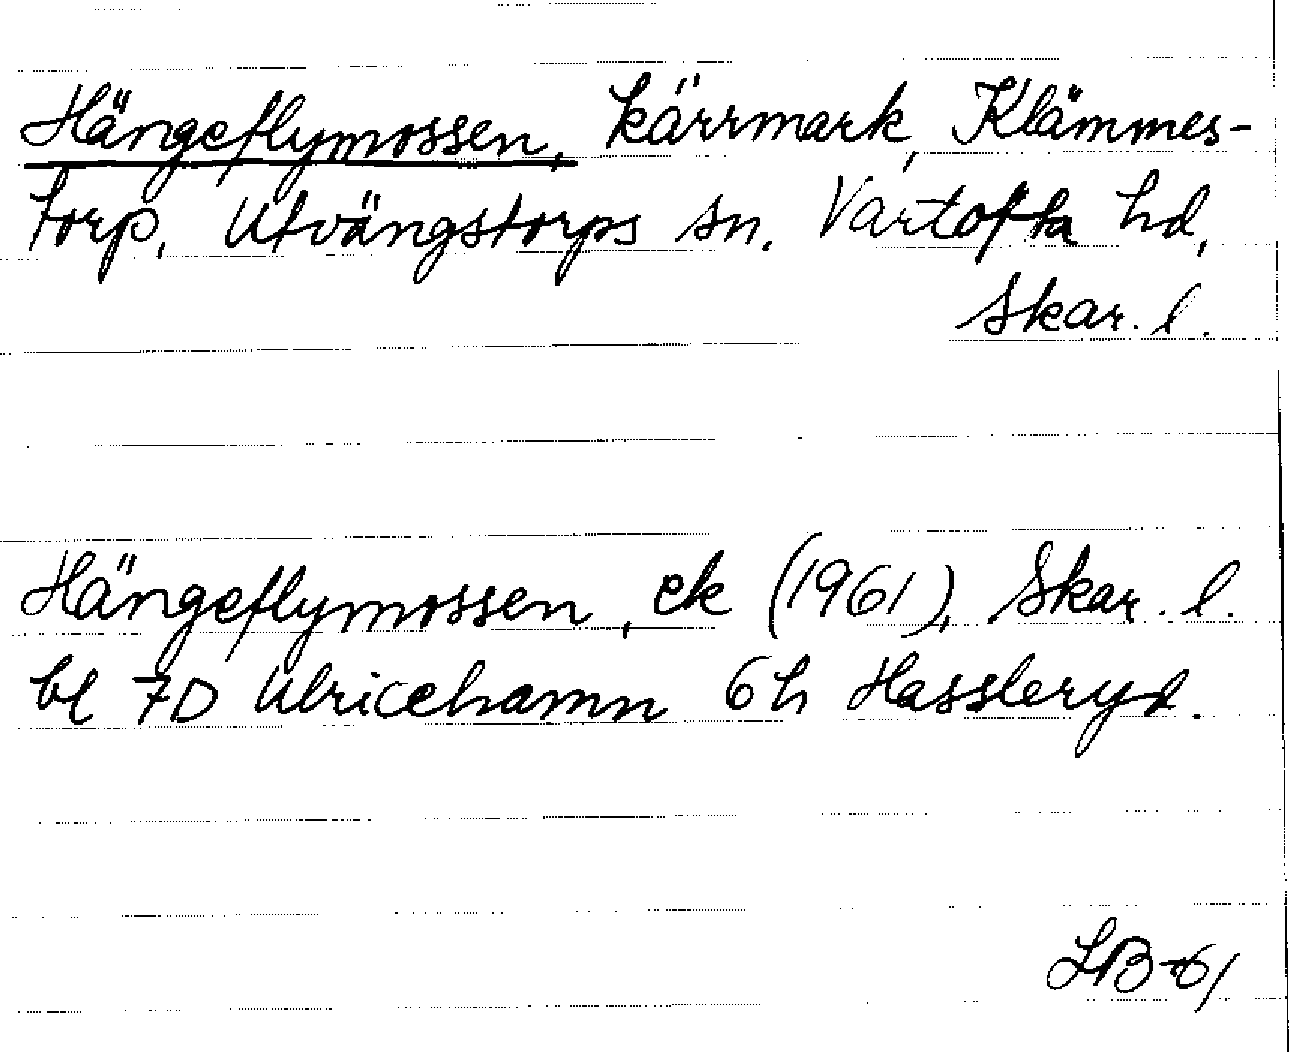 Hängeflymossen, kärrmark, Klämmes-
torp, Utvängstorps sn. Vartofta hd,
Skar. l.
Hängeflymossen, ek (1961), Skar. l.
bl 7D Ulricehamn 6h Hassleryd.
LB-61